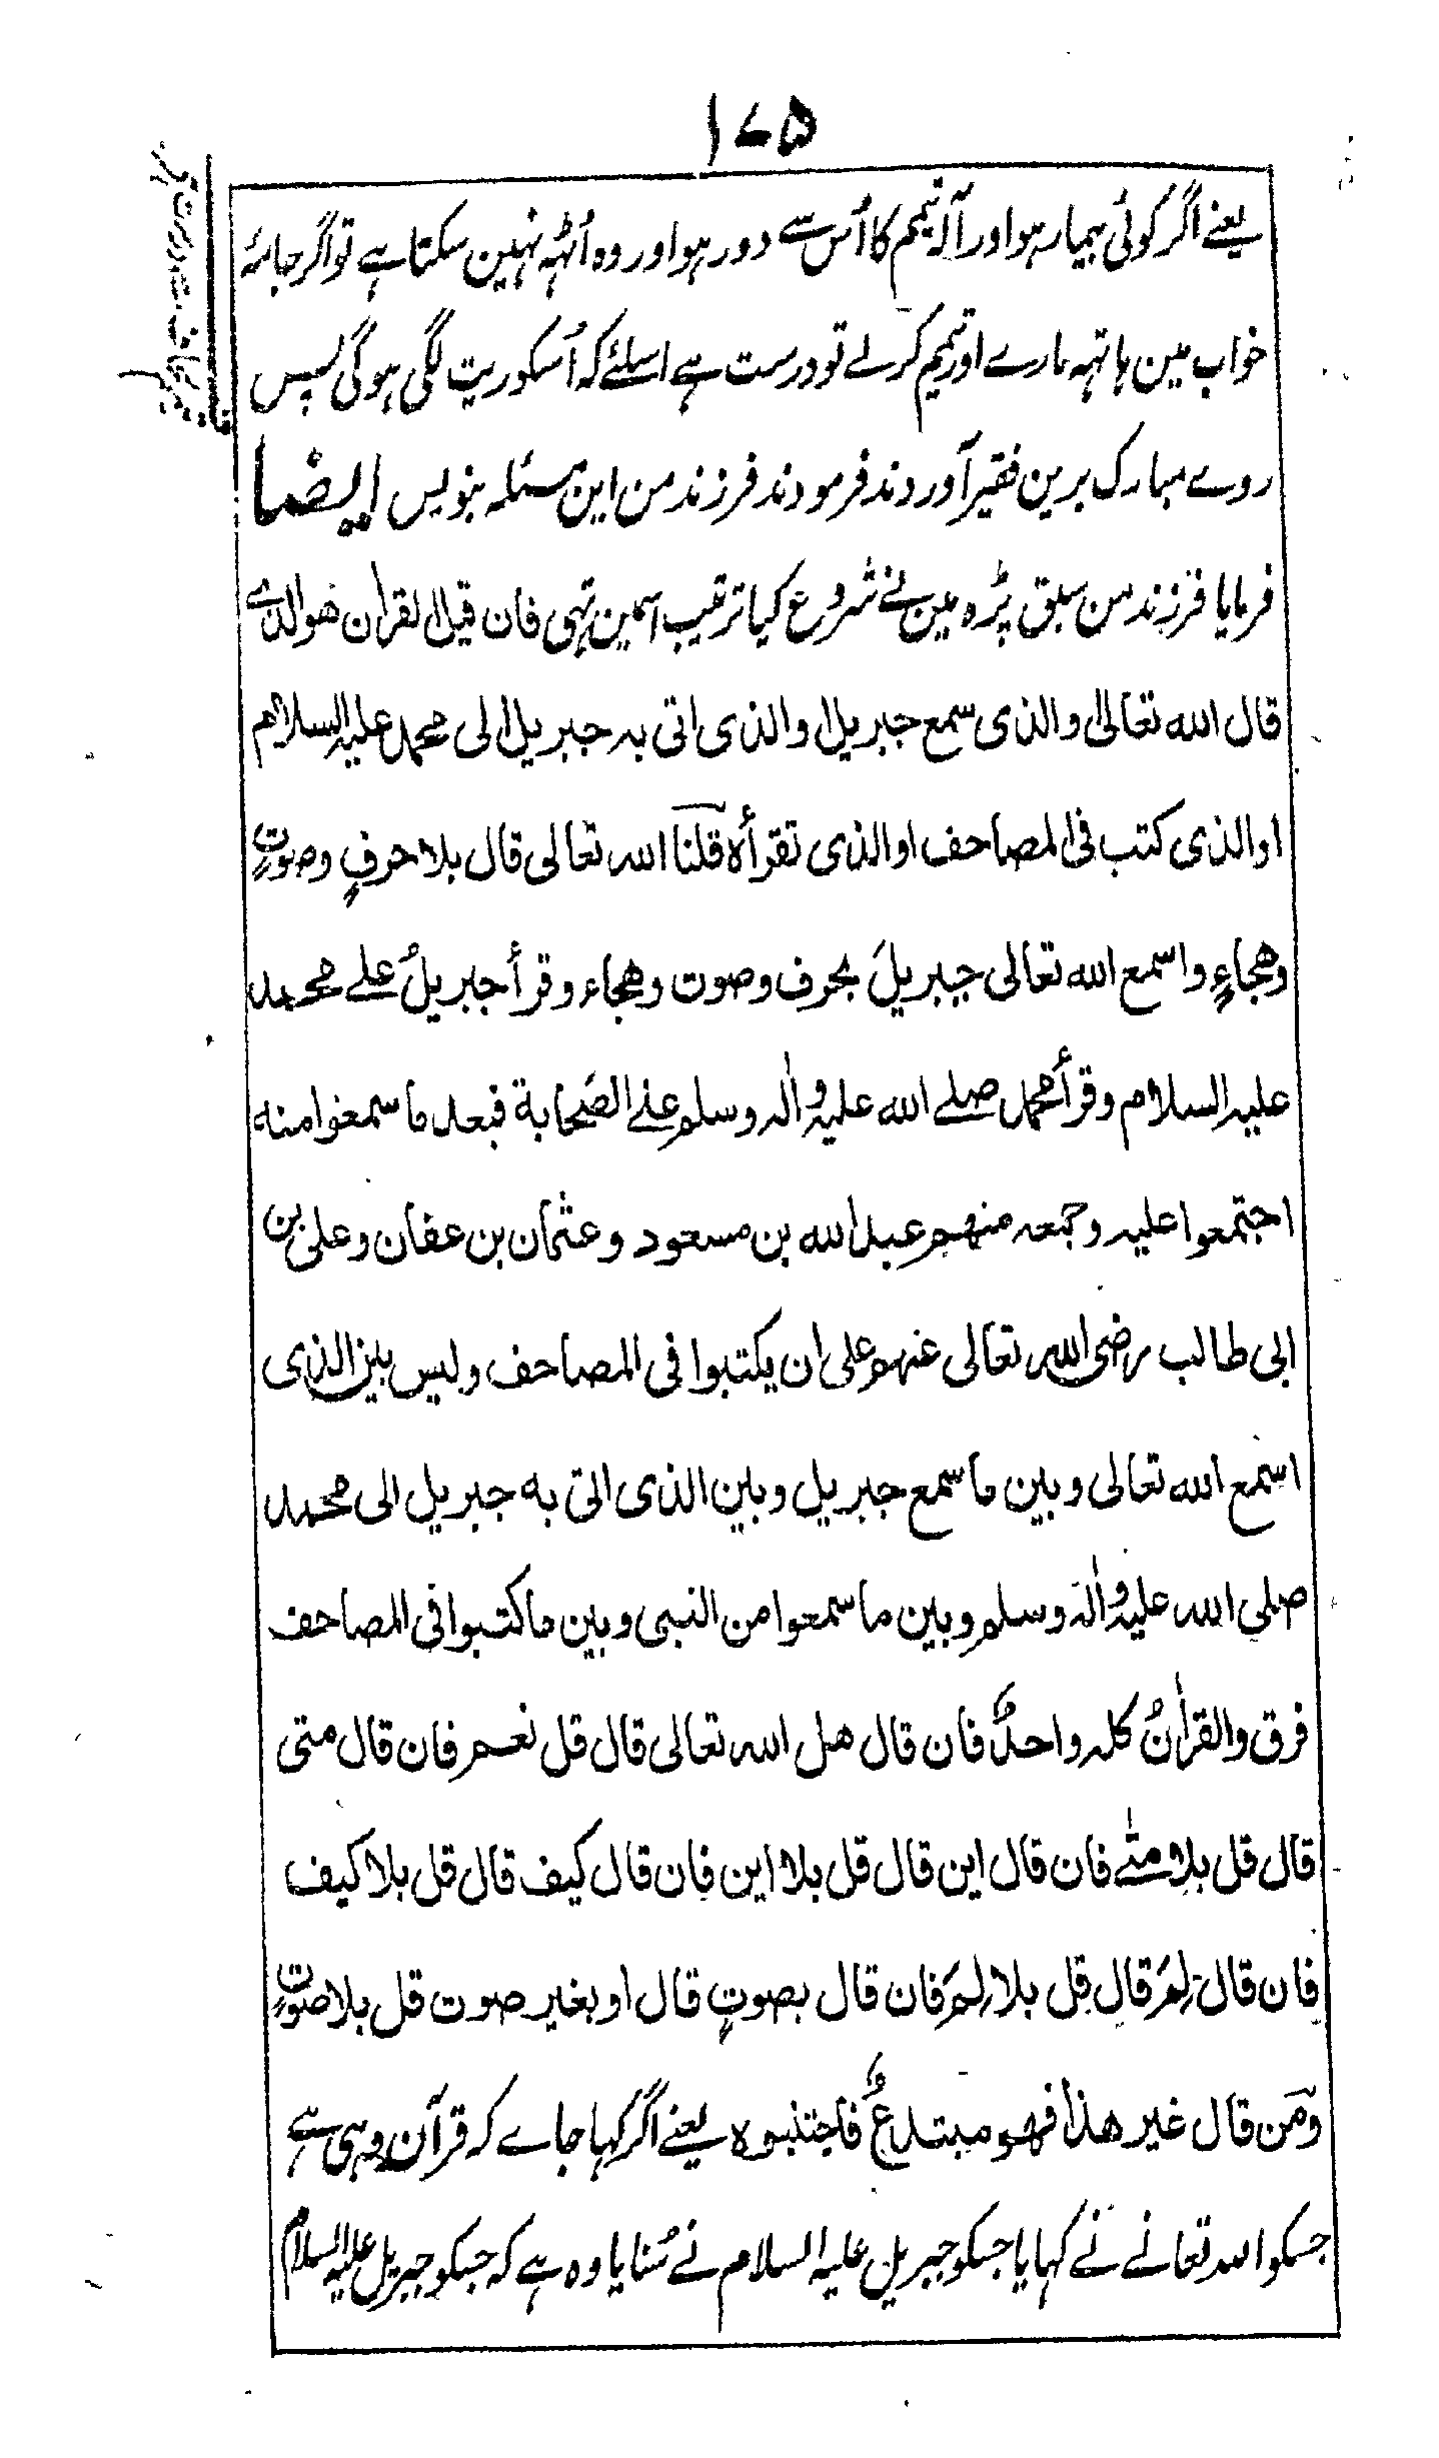 ۱۷۵
یعنے اگر کوئی بیمار ہو اور آلہ تیمم کا اُس سے دور ہو اور وہ اُٹہہ نہین سکتا ہے تو اگر جامۂ
خواب مین ہاتہہ مارے اور تیمم کرلے تو درست ہے اسلئے کہ اُسکو ریت لگی ہوگی پس
روے مبارک برین فقیر آوردند فرمودند فرزند من این مسئلہ بنویس ایضا
فرمایا فرزند من سبق پڑہ مین نے شروع کیا ترتیب اسمین تہی فان قیل القران هو الذے
قال الله تعالیٰ او الذی سمع جبریل او الذی اتی به جبریل الی محمد علیه السلام
او الذی کتب فی المصاحف او الذی تقرأه قلنا الله تعالی قال بلا حرفٍ وصوتٍ
وهجاءٍ واسمع الله تعالی جبریلَ بحرف وصوت وهجاء وقرأ جبریلُ علے محمد
علیه السلام وقرأ محمد صلے الله علیه واٰله وسلم علے الصَحابة فبعد ما سمعوا منه
اجتمعوا علیه وجمعه منهم عبد الله بن مسعود وعثمان بن عفان وعلی بن
ابی طالب رضی الله تعالی عنهم علی ان یکتبوا فی المصاحف ولیس بین الذی
اسمع الله تعالی وبین ما سمع جبریل وبین الذی اتی به جبریل الی محمد
صلی الله علیه واٰله وسلم وبین ما سمعوا من النبی وبین ما کتبوا فی المصاحف
فرق والقراٰنُ کله واحدٌ فان قال هل الله تعالی قال قل نعم فان قال متی
قال قل بلا متٰے فان قال این قال قل بلا این فان قال کیف قال قل بلا کیف
فان قال لِمَ قال قل بلا لِمَ فان قال بصوتٍ قال او بغیر صوت قل بلا صوتٍ
ومَن قال غیر هذا فهو مبتدعٌ فاجتنبوه یعنے اگر کہا جاے کہ قرآن وہی ہے
جسکو الله تعالے نے کہا یا جسکو جبریل علیہ السلام نے سُنا یا وہ ہے کہ جسکو جبریل علیہ السلام